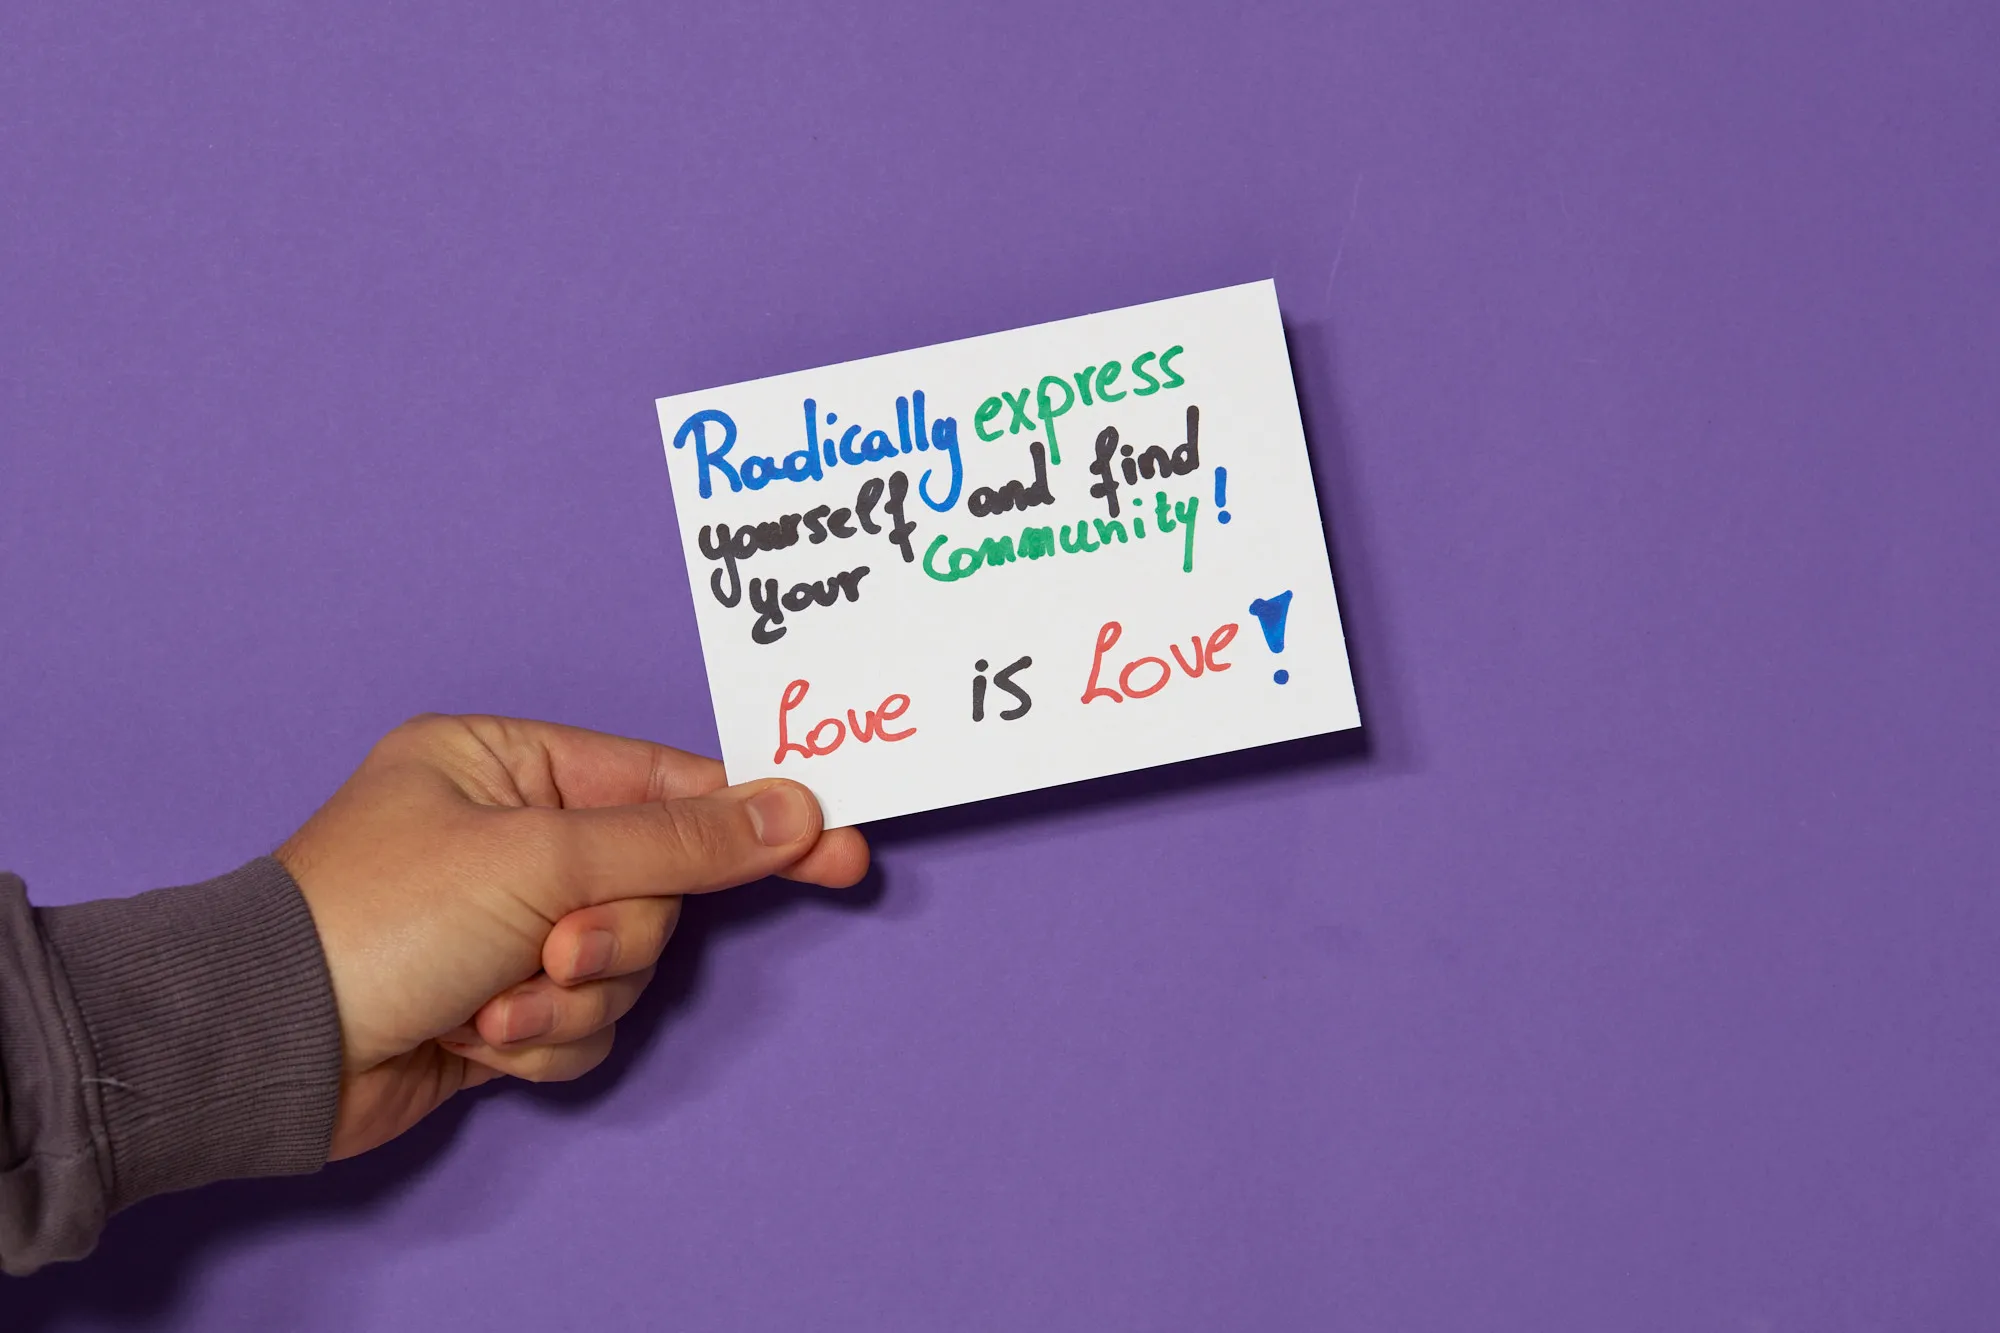 Radically express
yourself and find
your community!
Love is Love!